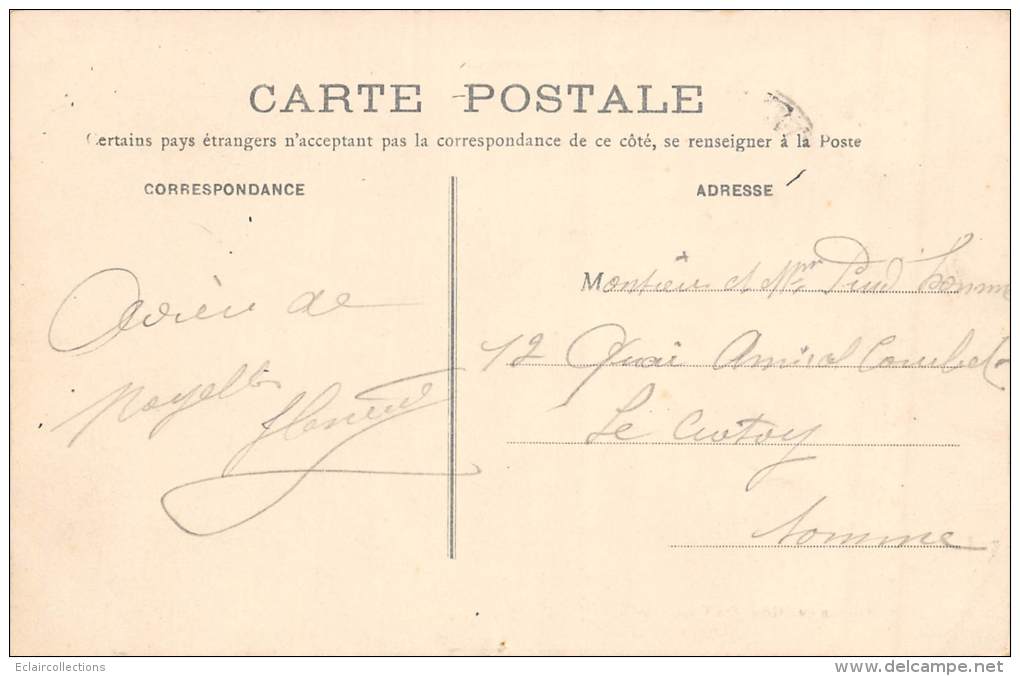 CARTE POSTALE
Certains pays étrangers n'acceptant pas la correspondance de ce côté, se renseigner à la Poste
CORRESPONDANCE
ADRESSE
de
Monsieur et Mme
12 Quai Amiral Courbet
Le Crotoy
Somme
Eclaircollections
www.delcampe.net